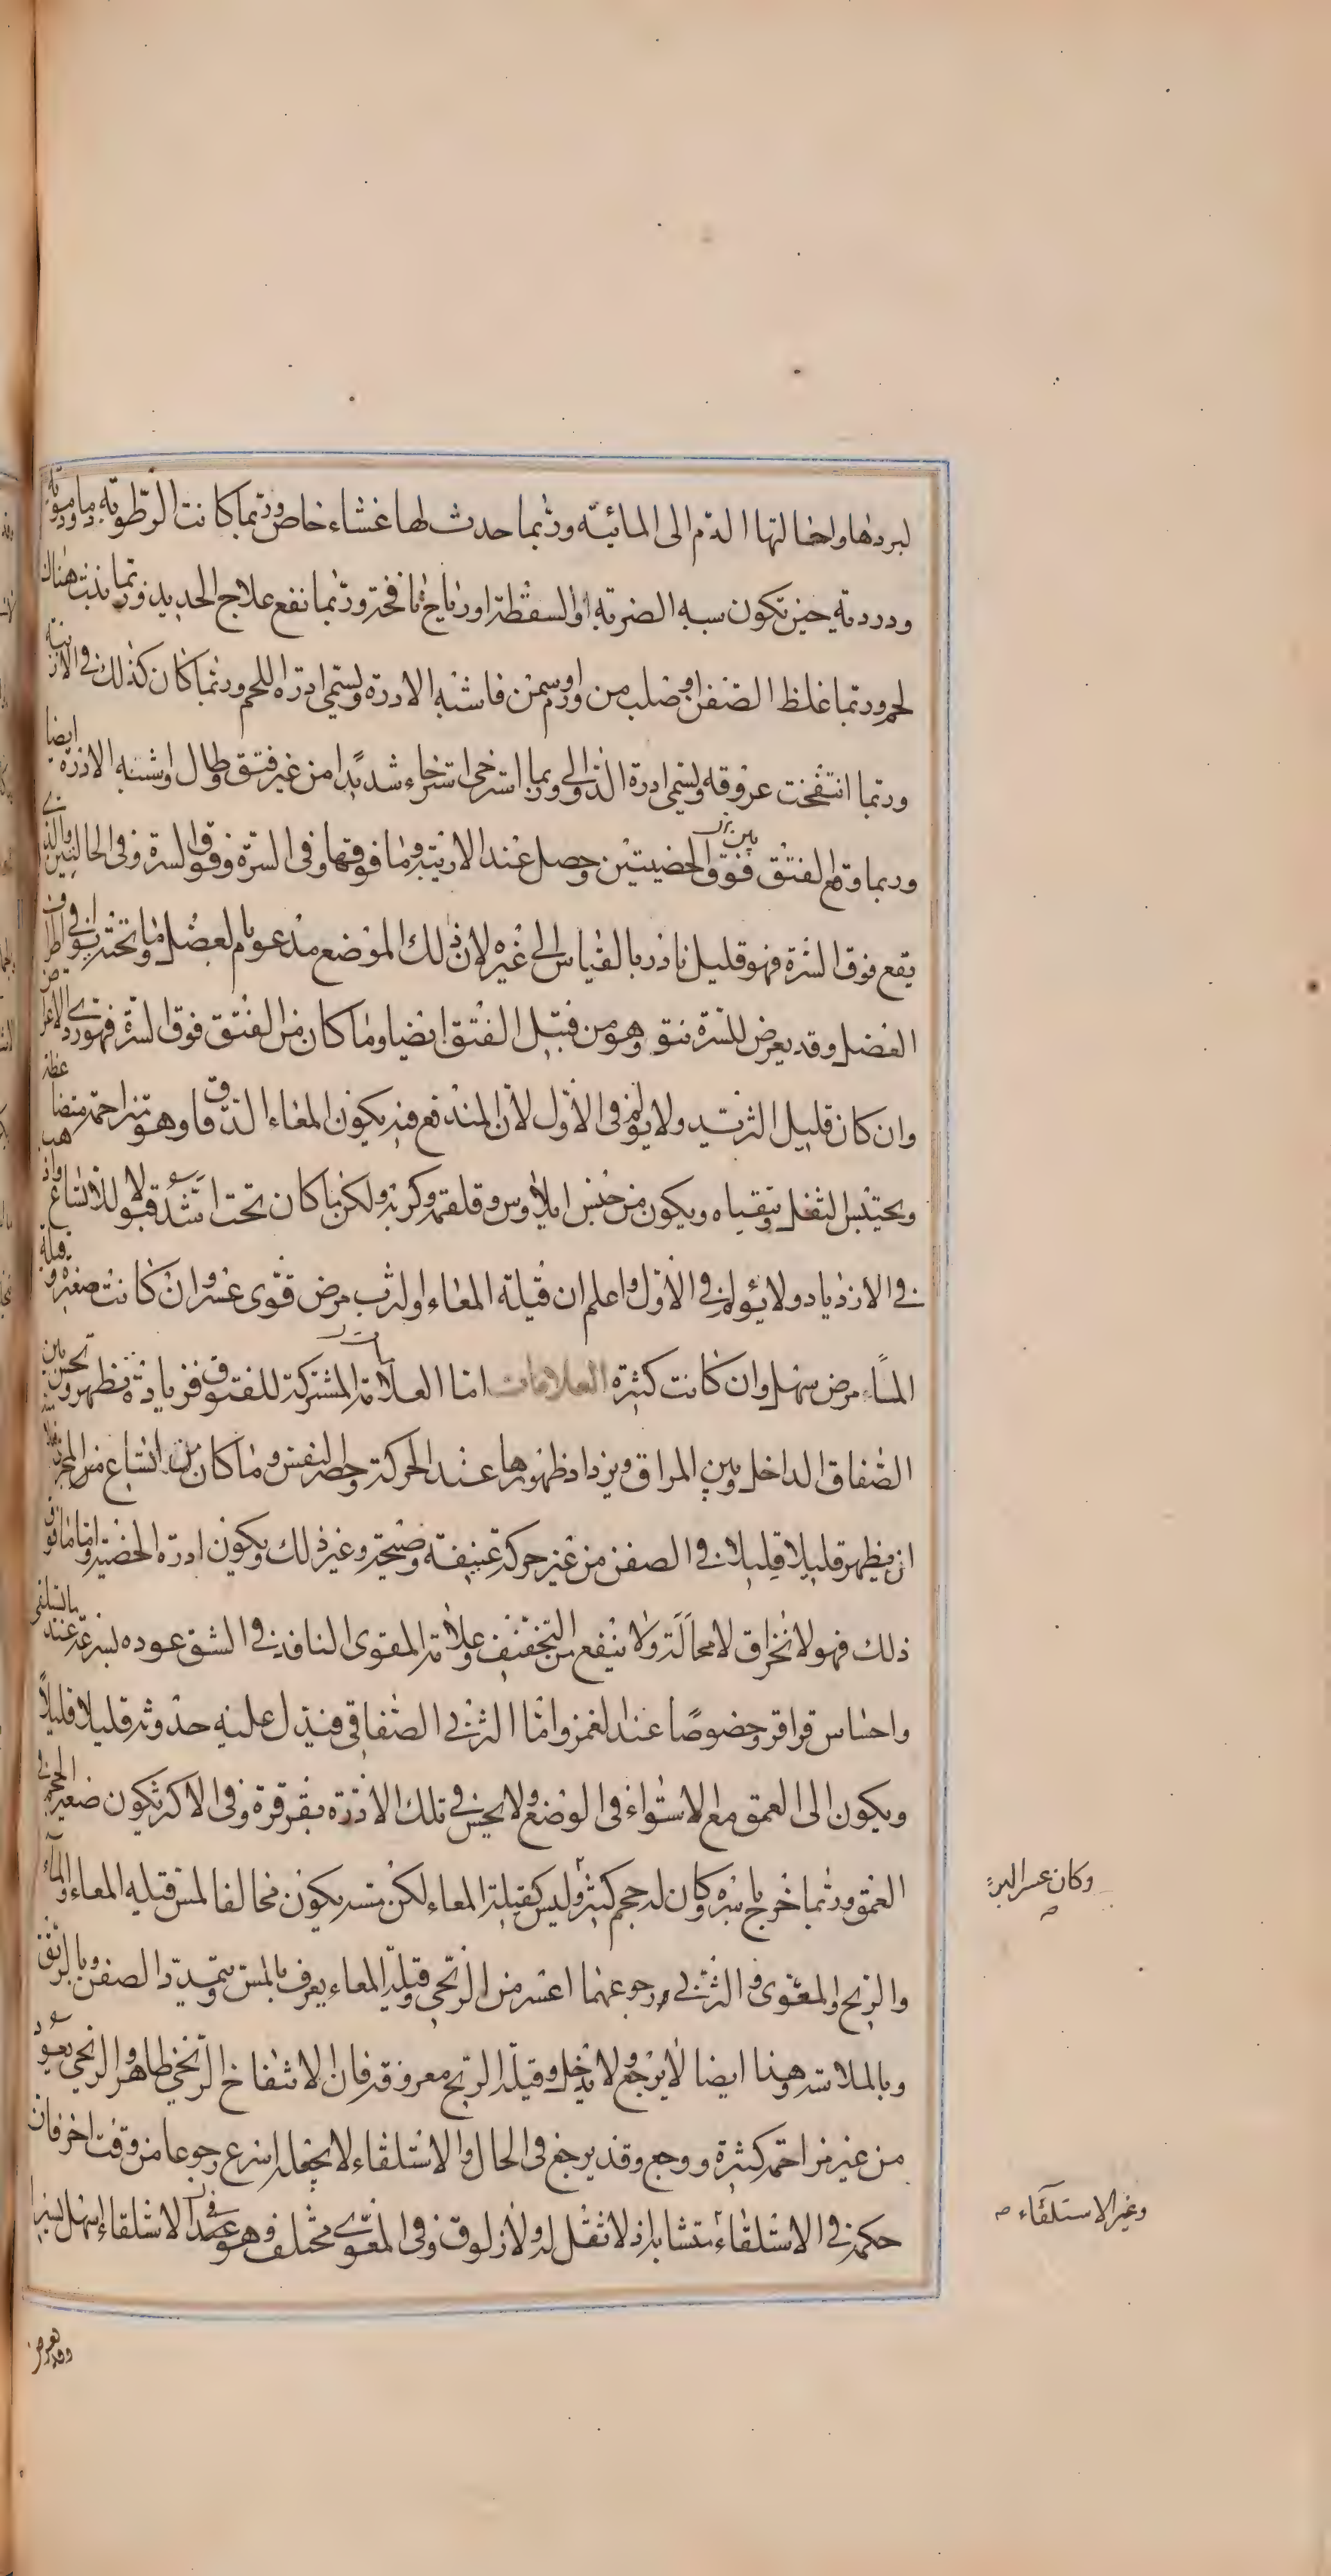 لبردها واحالتها الدم الى المائية وربما حدث لها غشاء خاص وربما كانت الرطوبة دما ودموية
ودردية حين تكون سببه الضربة او السقطة او رياح نافخة وربما نفع علاج الحديد وربما نبت هناك
لحم وربما غلظ الصفن او صلب من ورم او سمن فاشبه الادرة ويسمى ادرة اللحم وربما كان كذلك في الاربية
وربما انتفخت عروقه ويسمى ادرة الدوالى وربما استرخى استرخاء شديدا من غير فتق وطال واشبه الادرة ايضا
وربما وقع الفتق فوق الخصيتين وحصل عند الاربية وما فوقها وفى السرة وفوق السرة وفى الحالبين والذى
يقع فوق السرة فهو قليل نادر بالقياس الى غيره لان ذلك الموضع مدعوم بالعضل وما تحته يوافى اطراف
العضل وقد يعرض للسرة نتو وهو من قبيل الفتق ايضا وما كان من الفتق فوق السرة فهو ردى الاعراض
وان كان قليل التزيد ولا يولم فى الاول لان المندفع فيه يكون المعاء الدقاق وهو متزاحمة متضاغطة
ويحتبس الثفل ويتقياه ويكون من جنس ايلاوس وقلقة وكربه ولكن ما كان تحت اشد قبولا للاتساع واذهب
فى الازدياد ولا يولم فى الاول واعلم ان قيلة المعاء او الثرب مرض قوى عسر وان كانت صغيرة وقيلة
الماء مرض سهل وان كانت كثيرة العلامات اما العلامات المشتركة للفتوق فزيادة تظهر وتحس بين
الصفاق الداخل وبين المراق ويزداد ظهورها عند الحركة وحصر النفس وما كان من اتساع من المجرى فعلامته
ان يظهر قليلا قليلا فى الصفن من غير حركة عنيفة وصيحة وغير ذلك ويكون ادرة الخصية واما ما فوق
ذلك فهو لانخراق لا محالة ولا ينفع من التجفيف وعلامة المعوى النافذ فى الشق عوده بسرعة عند الاستلقاء
واحساس قراقر وخصوصا عند الغمز واما الثربى الصفاقى فيدل عليه حدوثه قليلا قليلا
ويكون الى العمق مع الاستواء فى الوضع ولا يحس فى تلك الادرة بقرقرة وفى الاكثر تكون صغير الحجم فى
العمق وربما خرج باسره وكان له حجم كثير وليس كقيلة المعاء لكن مسه يكون مخالفا لمس قيلة المعاء والماء
والريح والمعوى والثربى رجوعهما اعسر من الريحى وقيلة المعاء يعرف بالمس وتمدد الصفن وبالبريق
وبالملاسة وهذا ايضا لا يرجع ولا يدخل وقيلة الريح معروفة فان الانتفاخ الريحى ظاهر والريحى يعود
من غير مزاحمة كثيرة ووجع وقد يرجع فى الحال والاستلقاء لا يجعله اسرع رجوعا من وقت اخر فان
حكمه فى الاستلقاء متشابه اذ لا ثقل له ولا زلوق وفى المعوى مختلف وهو عند الاستلقاء اسهل يسيرا
وكان عسر البرء
وغير الاستلقاء
وقد يعرض